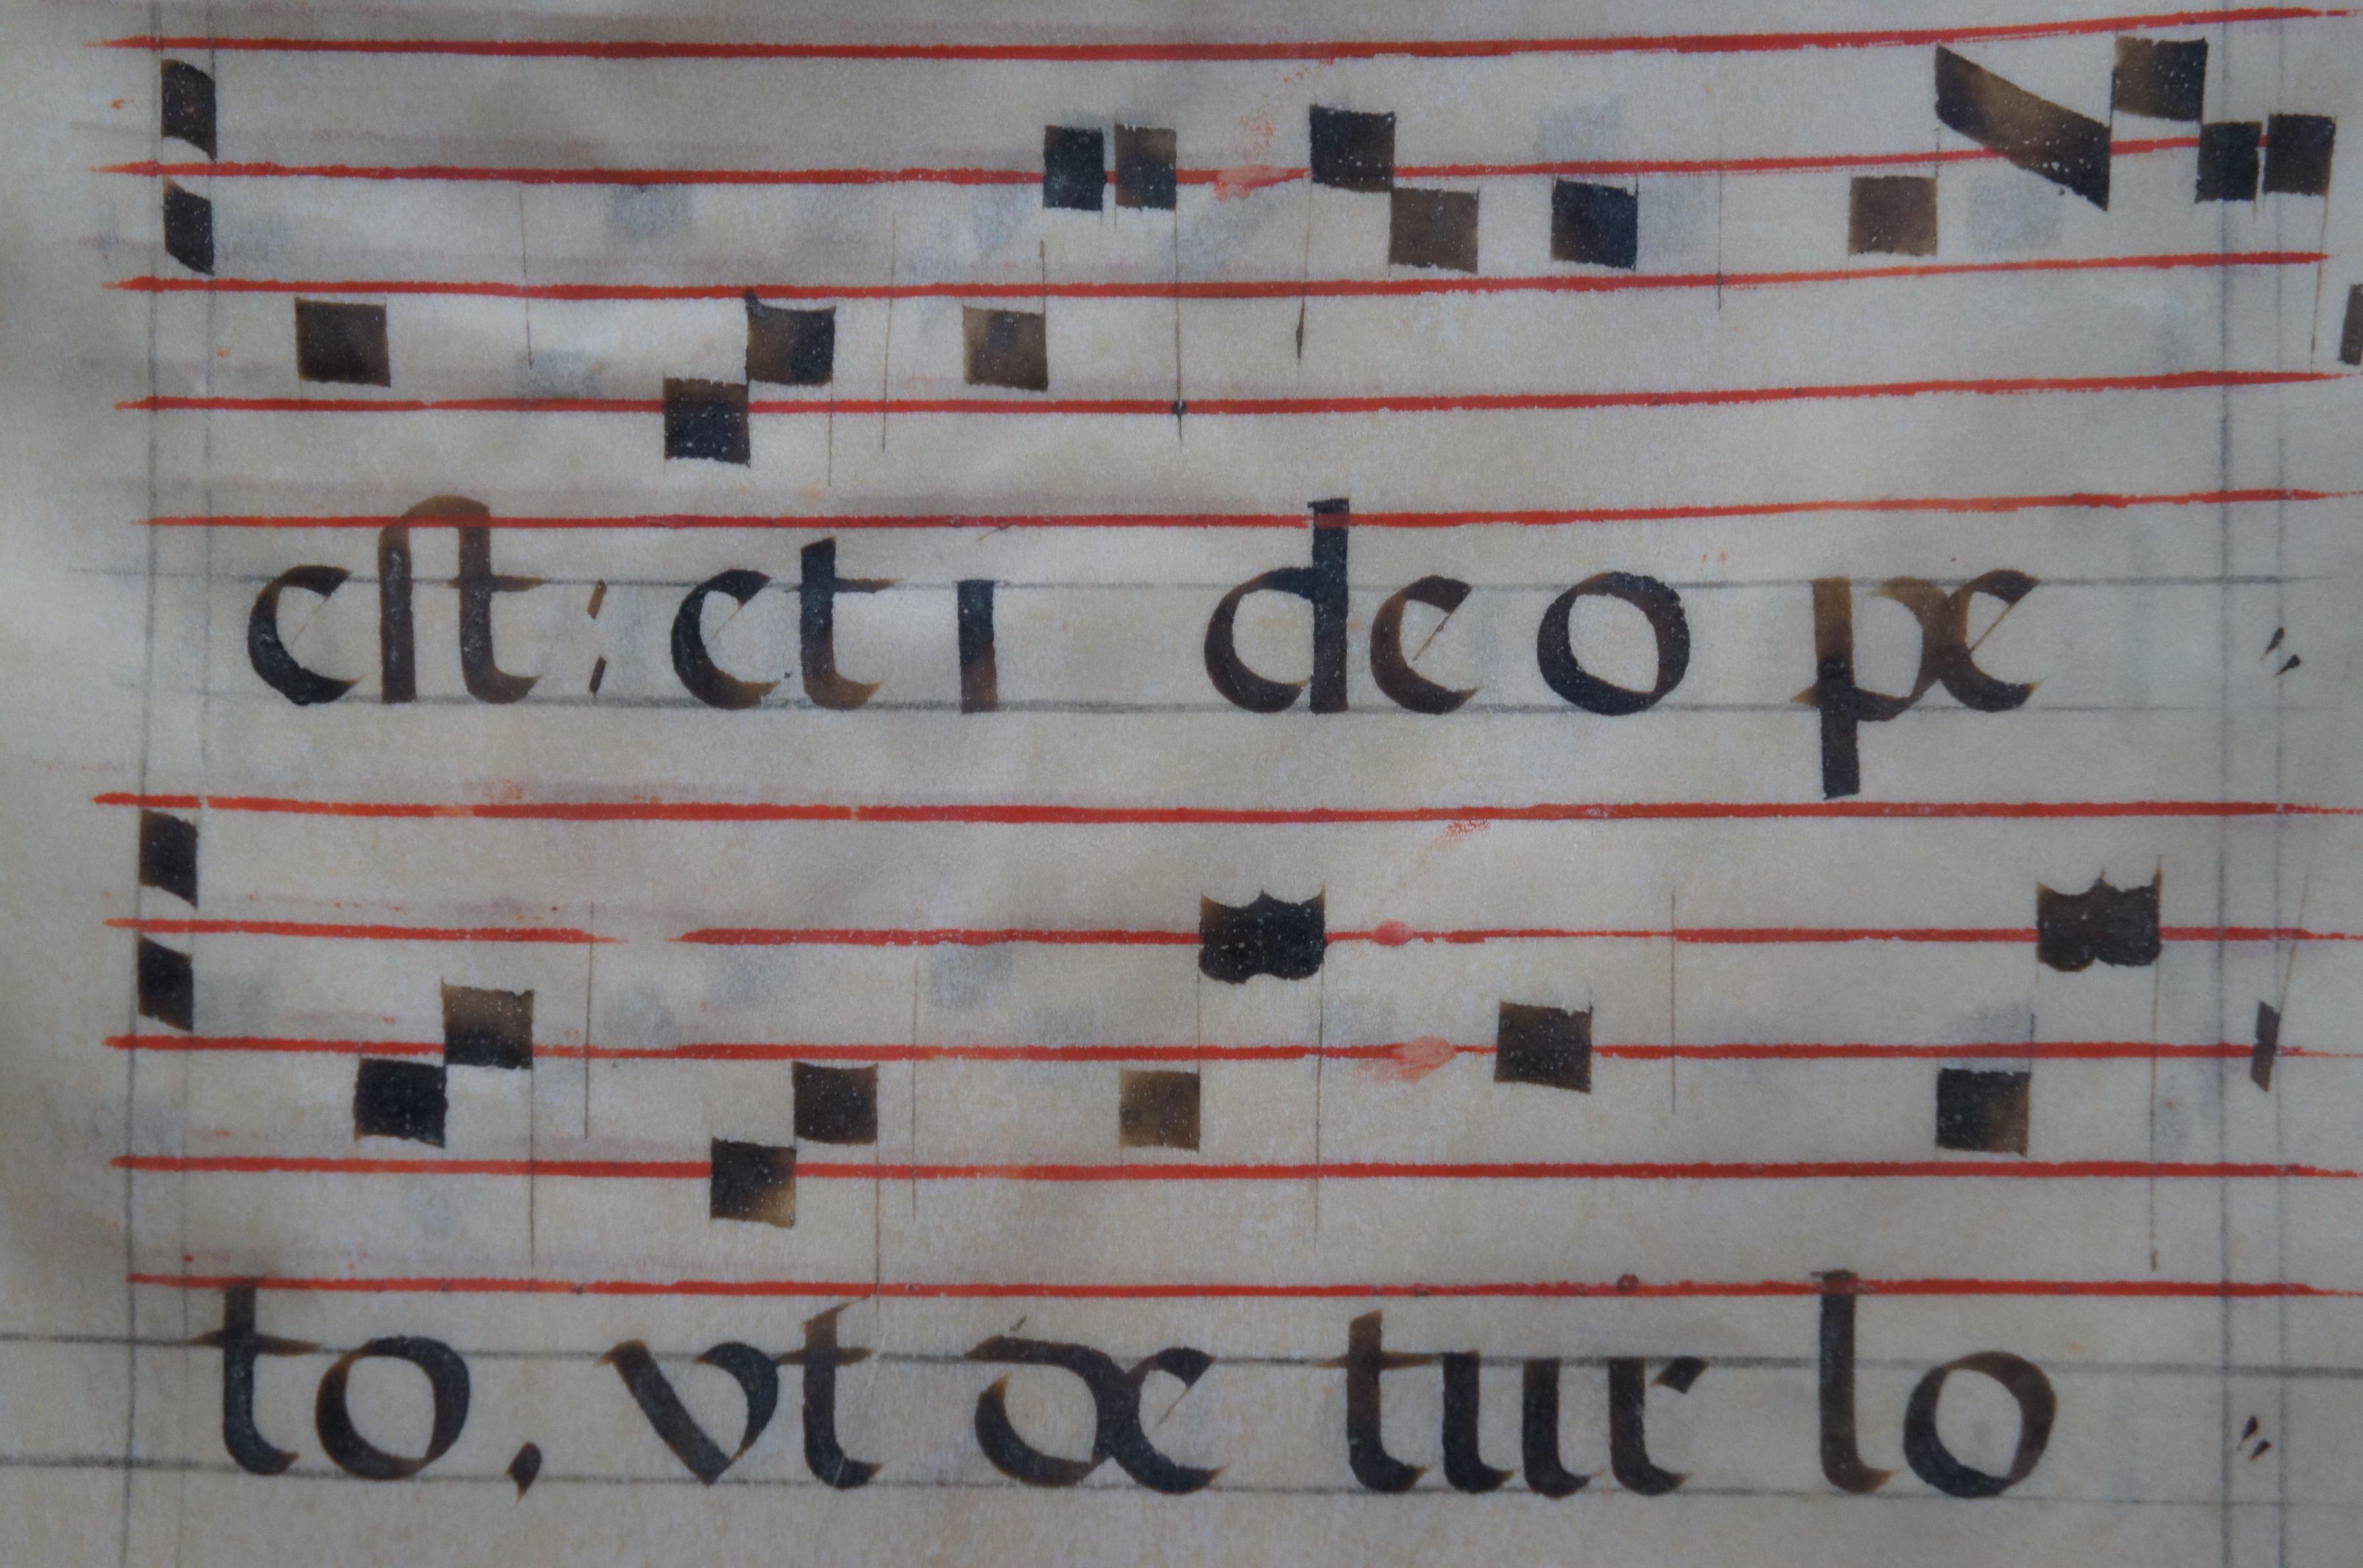 eſt: et i deo pe=
to, vt de tur lo=